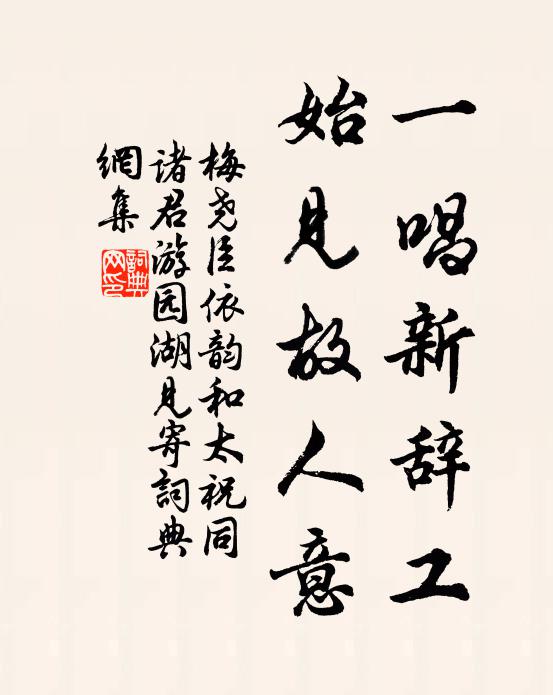 一唱新辞工
始见故人意
梅尧臣依韵和太祝同
诸君游园湖见寄詞典
網集
詞典
网印